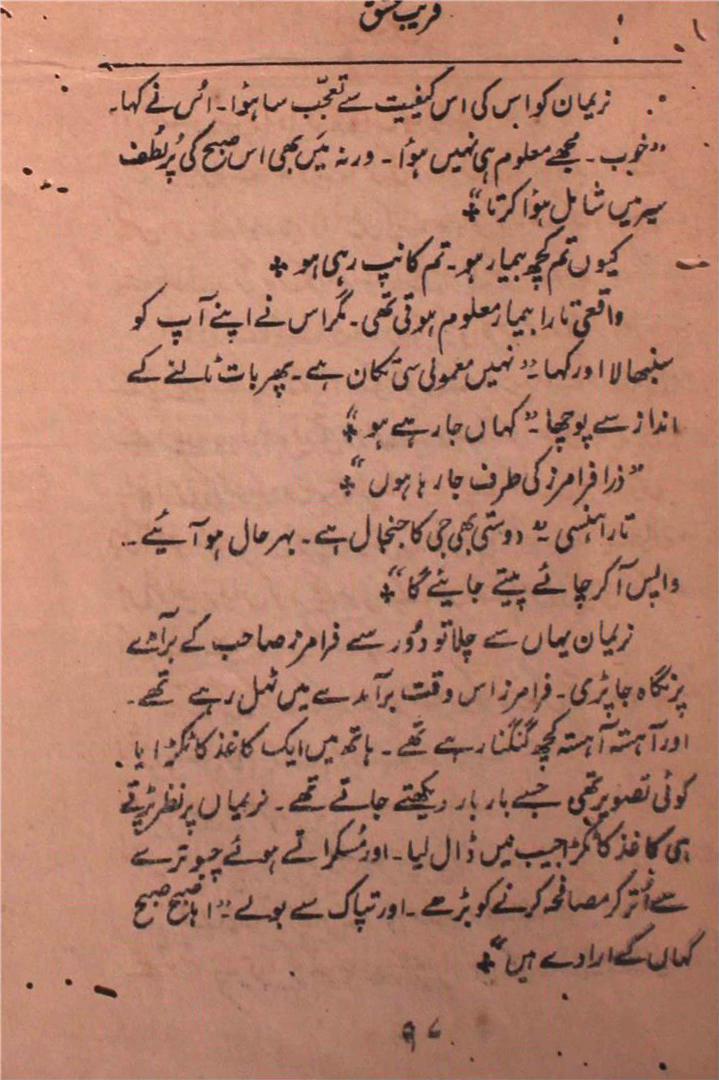 فریب عشق
نریمان کو اس کی اس کیفیت سے تعجّب سا ہؤا۔ اُس نے کہا۔
”خوب۔ مُجھے معلوم ہی نہیں ہؤا۔ ورنہ مَیں بھی اس صبح کی پُرلُطف
سیر میں شامل ہؤا کرتا“ *
کیوں تم کچھ بیمار ہو۔ تم کانپ رہی ہو *
واقعی تارا بیمار معلوم ہوتی تھی۔ مگر اس نے اپنے آپ کو
سنبھالا اور کہا۔ ”نہیں معمولی سی تکان ہے۔ پھر بات ٹالنے کے
انداز سے پوچھا۔ ”کہاں جا رہے ہو“ *
”ذرا فرامرز کی طرف جا رہا ہوں“ *
تارا ہنسی ”دوستی بھی جی کا جنجال ہے۔ بہر حال ہو آئیے۔
واپس آکر چائے پیتے جائیے گا“ *
نریمان یہاں سے چلا تو دُور سے فرامرز صاحب کے برآمدے
پر نگاہ جا پڑی۔ فرامرز اس وقت برآمدے میں ٹہل رہے تھے۔
اور آہستہ آہستہ کچھ گنگنا رہے تھے۔ ہاتھ میں ایک کاغذ کا ٹکڑا یا
کوئی تصویر تھی جسے بار بار دیکھتے جاتے تھے۔ نریمان پر نظر پڑتے
ہی کاغذ کا ٹکڑا جیب میں ڈال لیا۔ اور مُسکراتے ہوئے چبوترے
سے اُتر کر مصافحہ کرنے کو بڑھے۔ اور تپاک سے بولے۔ ”اہا صبح صبح
کہاں کے ارادے ہیں“ *